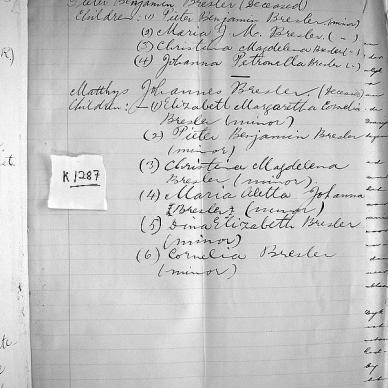 Pieter Benjamin Bresler (Deceased)
Children: (1) Pieter Benjamin Bresler (minor)
(2) Maria J. M. Bresler. ( " )
(3) Christina Magdelena Bresler ( " )
(4) Johanna Petronella Bresler ( " )
Matthys Johannes Bresler (Deceased)
Children: (1) Elizabeth Margaretha Cornelia
Bresler (minor)
(2) Pieter Benjamin Bresler
(minor)
(3) Christina Magdelena
Bresler (minor)
K 1287
(4) Maria Aletta Johanna
Bresler (minor)
(5) Dina Elizabeth Bresler
(minor)
(6) Cornelia Bresler
(minor)